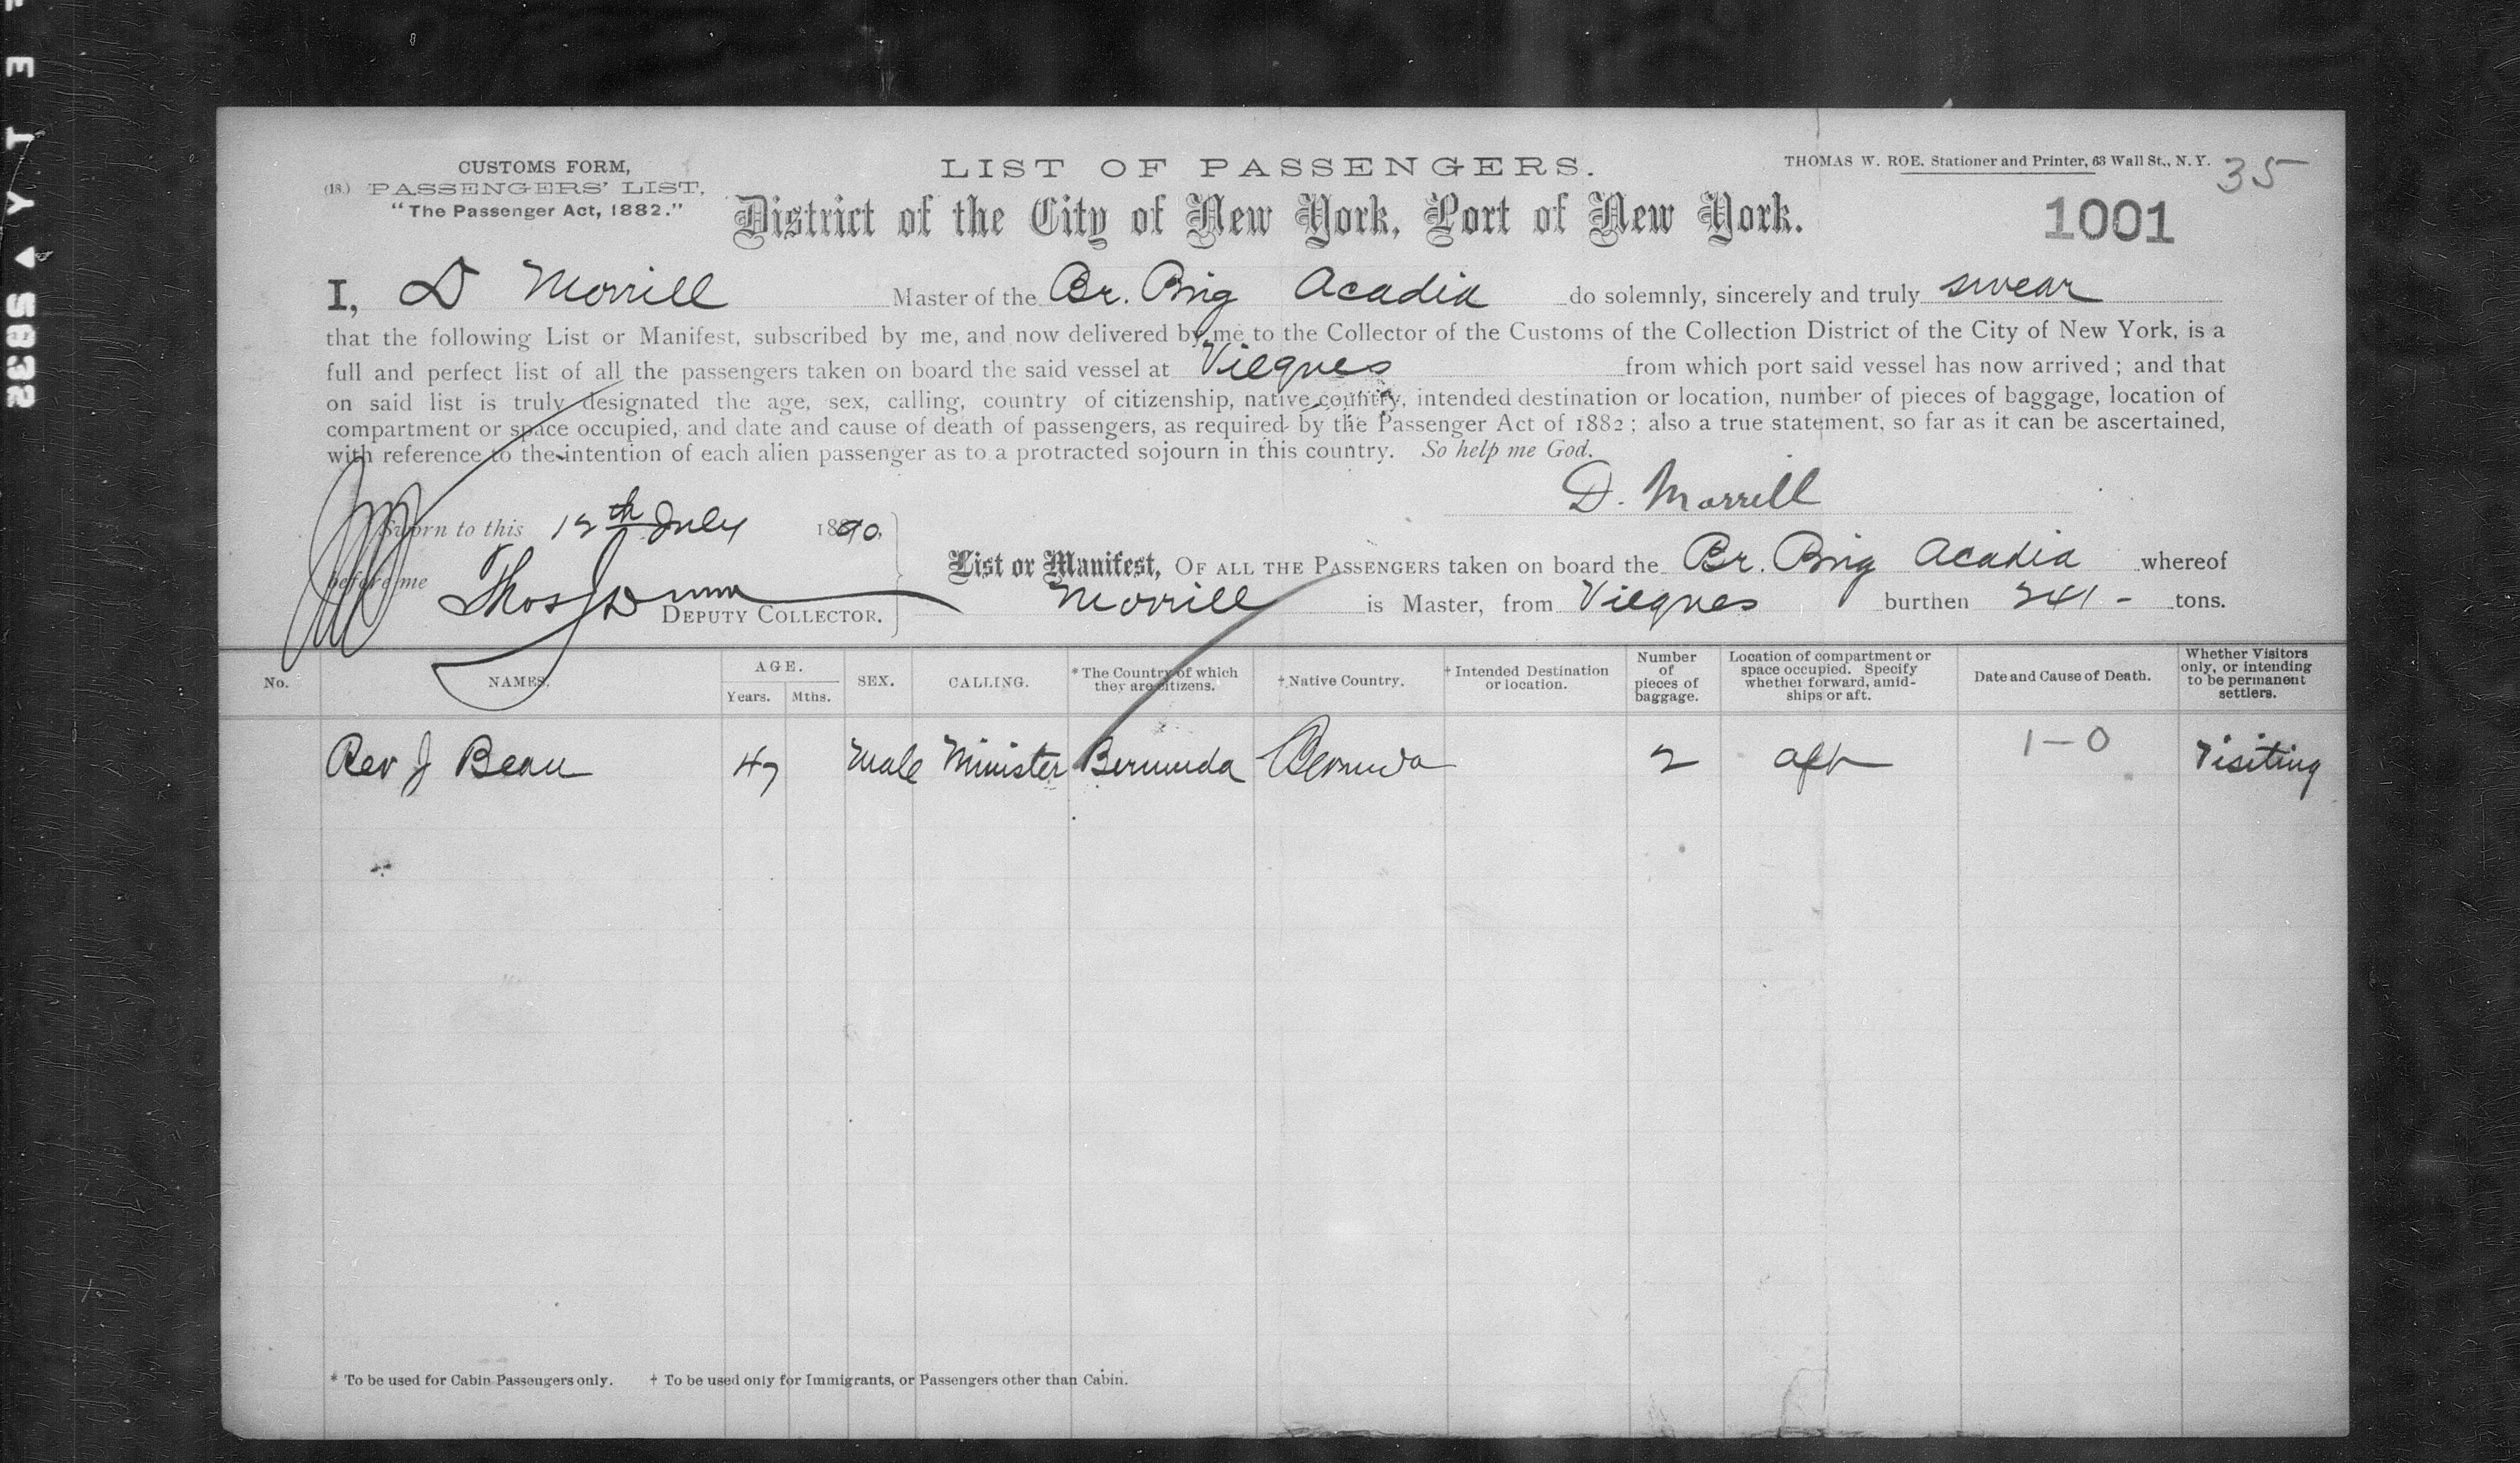 CUSTOMS FORM,
(18.) PASSENGERS' LIST,
"The Passenger Act, 1882."
LIST OF PASSENGERS.
THOMAS W. ROE. Stationer and Printer, 63 Wall St., N. Y.
35
District of the City of New York, Port of New York.
1001
I, D Morrill Master of the Br. Brig Acadia do solemnly, sincerely and truly swear
that the following List or Manifest, subscribed by me, and now delivered by me to the Collector of the Customs of the Collection District of the City of New York, is a
full and perfect list of all the passengers taken on board the said vessel at Vieques from which port said vessel has now arrived; and that
on said list is truly designated the age, sex, calling, country of citizenship, native country, intended destination or location, number of pieces of baggage, location of
compartment or space occupied, and date and cause of death of passengers, as required by the Passenger Act of 1882; also a true statement, so far as it can be ascertained,
with reference to the intention of each alien passenger as to a protracted sojourn in this country. So help me God.
D. Morrill
Sworn to this 12th July 1890,
before me Thos J Dunn
DEPUTY COLLECTOR.
List or Manifest, OF ALL THE PASSENGERS taken on board the Br. Brig Acadia whereof
Morrill is Master, from Vieques burthen 241 - tons.
No. NAMES. AGE. Years. Mths. SEX. CALLING. * The Country of which they are citizens. † Native Country. † Intended Destination or location. Number of pieces of baggage. Location of compartment or space occupied. Specify whether forward, amid-ships or aft. Date and Cause of Death. Whether Visitors only, or intending to be permanent settlers.
Rev J Bean 47 Male Minister Bermuda Bermuda 2 aft 1-0 Visiting
* To be used for Cabin Passengers only. † To be used only for Immigrants, or Passengers other than Cabin.